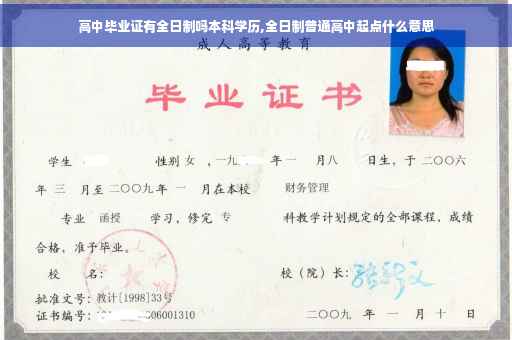 高中毕业证有全日制吗本科学历,全日制普通高中起点什么意思
成人高等教育
毕业证书
学生 性别 女 ，一九 年 一 月 八 日生，于 二〇〇六
年 三 月至 二〇〇九 年 一 月在本校 财务管理
专业 函授 学习，修完 专 科教学计划规定的全部课程，成绩
合格，准予毕业。
校 名： 校（院）长：
批准文号：教计[1998]33号
证书编号： 06001310 二〇〇九 年 一 月 十 日